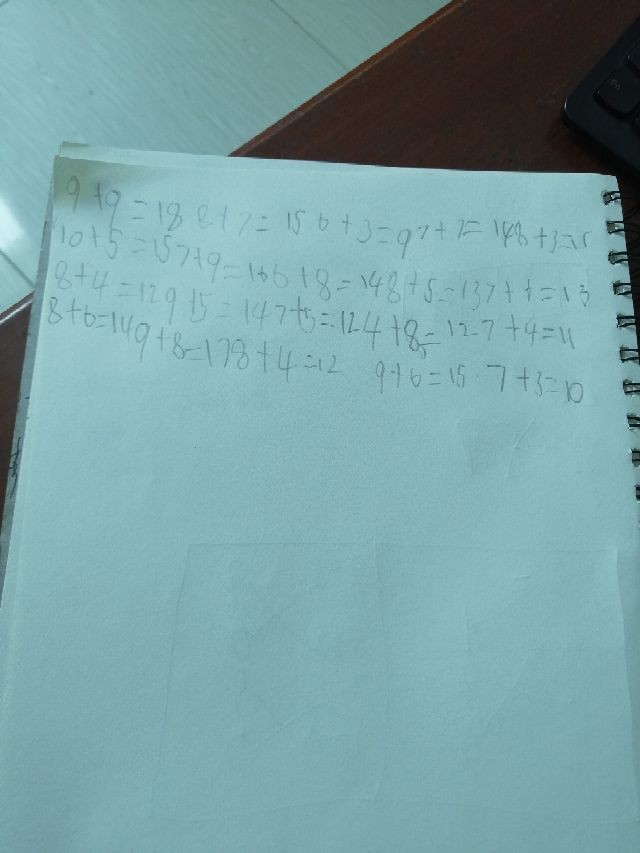 9+9=18 8+7=15 6+3=9 7+7=14 8+3=11
10+5=15 7+9=16 6+8=14 8+5=13 7+6=13
8+4=12 9+5=14 7+5=12 4+8=12 7+4=11
8+6=14 9+8=17 8+4=12 9+6=15 7+3=10